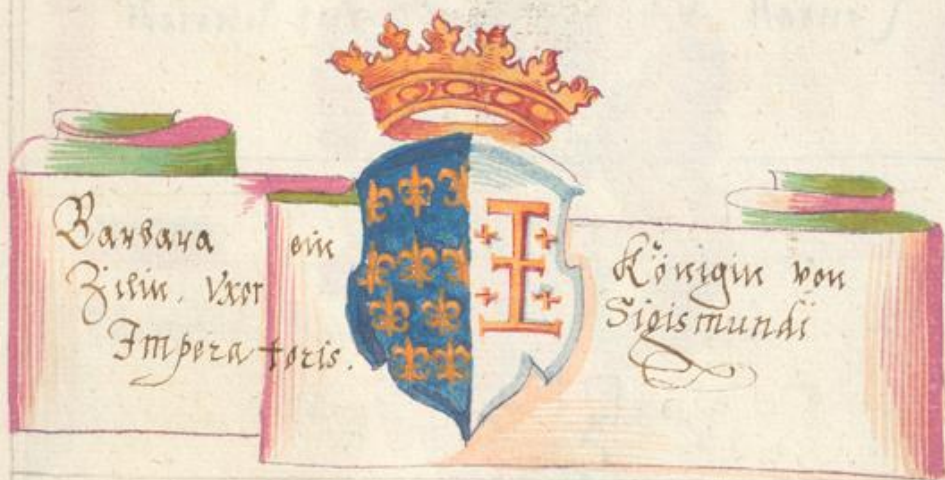 Barbara ein Königin von
Zilin. Vxor Sigismundi
Imperatoris.